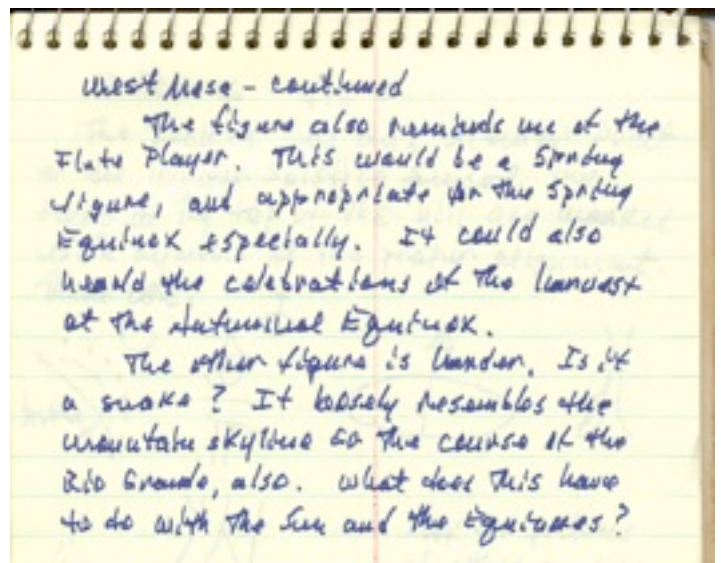 West Mesa - continued
The figure also reminds me of the
Flute Player. This would be a Spring
figure, and appropriate for the Spring
Equinox especially. It could also
herald the celebrations of the harvest
at the Autumnal Equinox.
The other figure is harder. Is it
a snake? It loosely resembles the
mountain skyline so the course of the
Rio Grande, also. What does this have
to do with the Sun and the Equinoxes?